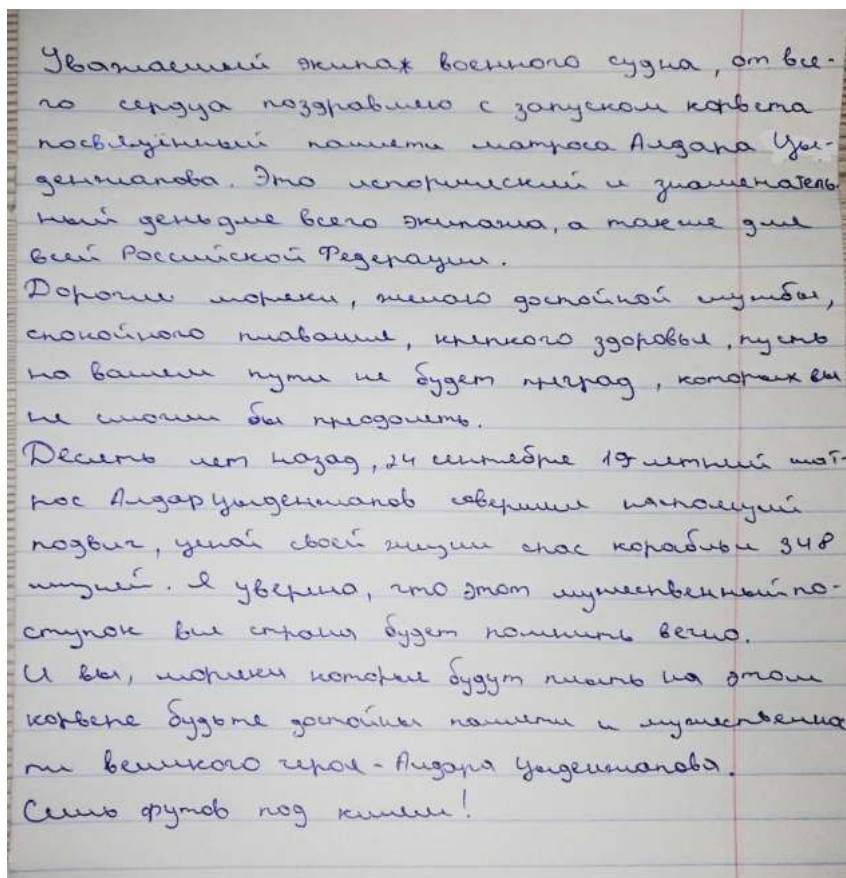 Уважаемый экипаж военного судна, от все-
го сердца поздравляю с запуском корвета
посвящённый памяти матроса Алдара Цы-
денжапова. Это исторический и знаменатель-
ный день для всего экипажа, а также для
всей Российской Федерации.
Дорогие моряки, желаю достойной службы,
спокойного плавания, крепкого здоровья, пусть
на вашем пути не будет преград, которых вы
не смогли бы преодолеть.
Десять лет назад, 24 сентября 19 летний мат-
рос Алдар Цыденжапов совершил настоящий
подвиг, ценой своей жизни спас корабль и 348
жизней. Я уверена, что этот мужественный по-
ступок вся страна будет помнить вечно.
И вы, моряки которые будут плыть на этом
корвете будьте достойны памяти и мужественнос
ти великого героя - Алдара Цыденжапова.
Семь футов под килем!